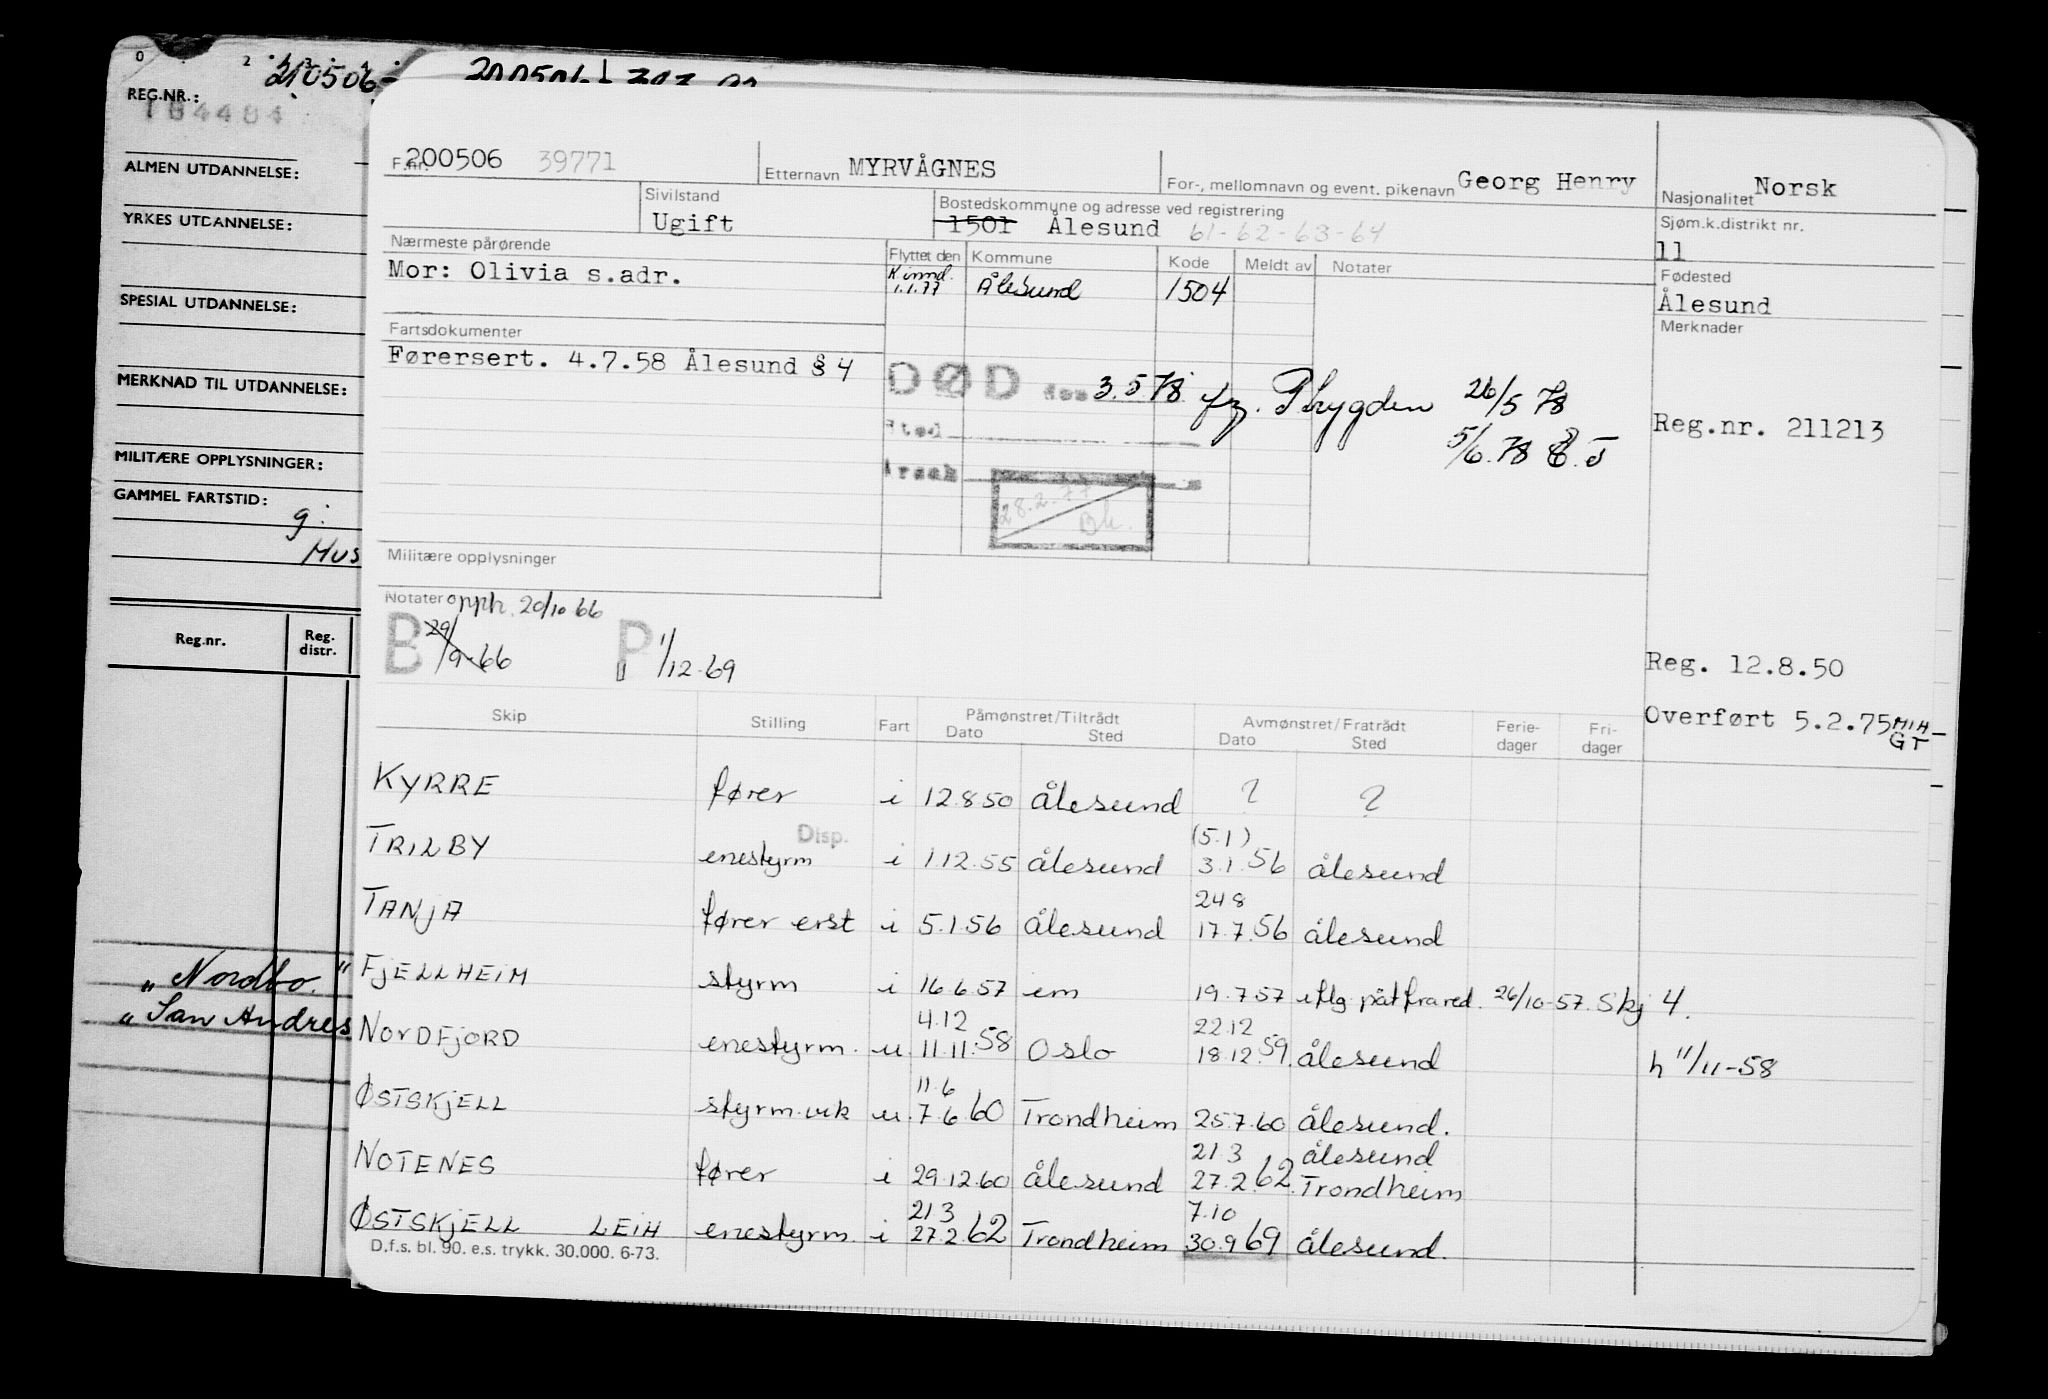 0 2
210506-
REG.NR.:
184484
ALMEN UTDANNELSE:
YRKES UTDANNELSE:
SPESIAL UTDANNELSE:
MERKNAD TIL UTDANNELSE:
MILITÆRE OPPLYSNINGER:
GAMMEL FARTSTID:
g:
Mus
Reg.nr. Reg. distr.
„Nordbo."
„San Andres
F.nr. 200506 39771 Etternavn MYRVÅGNES For-, mellomnavn og event. pikenavn Georg Henry Nasjonalitet Norsk
Sivilstand Ugift
Bostedskommune og adresse ved registrering
1501 Ålesund 61-62-63-64
Sjøm.k.distrikt nr.
11
Nærmeste pårørende
Mor: Olivia s.adr.
Flyttet den Kommune Kode Meldt av Notater
K.innd. 1.1.77 Ålesund 1504
Fødested
Ålesund
Merknader
Fartsdokumenter
Førersert. 4.7.58 Ålesund § 4
DØD den 3.5.78. fz. Pltrygden 26/5 78
Sted
5/6.78
Årsak
28.2.77
Reg.nr. 211213
Militære opplysninger
Notater opph. 20/10 66
B 29/9-66 P 1/12-69
Reg. 12.8.50
Overført 5.2.75 MIH-GT
Skip Stilling Fart Påmønstret/Tiltrådt Avmønstret/Fratrådt Ferie- Fri-
Dato Sted Dato Sted dager dager
KYRRE fører i 12.8.50 Ålesund ? ?
Disp. (5.1)
TRILBY enestyrm i 1.12.55 Ålesund 3.1.56 Ålesund
24.8
TANJA fører erst i 5.1.56 Ålesund 17.7.56 Ålesund
FJELLHEIM styrm i 16.6.57 em 19.7.57 iflg. påt fra red. 26/10-57. Skj 4.
4.12 22.12
NORDFJORD enestyrm. u. 11.11.58 Oslo 18.12.59. Ålesund h 11/11-58
11.6
ØSTSKJELL styrm.vik u. 7.6 60 Trondheim 25.7.60 Ålesund.
21.3 Ålesund
NOTENES fører i 29.12.60 Ålesund 27.2.62. Trondheim
21.3 7.10
ØSTSKJELL LEIH enestyrm. i 27.2 62 Trondheim 30.9 69 Ålesund.
D.f.s. bl. 90. e.s. trykk. 30.000. 6-73.